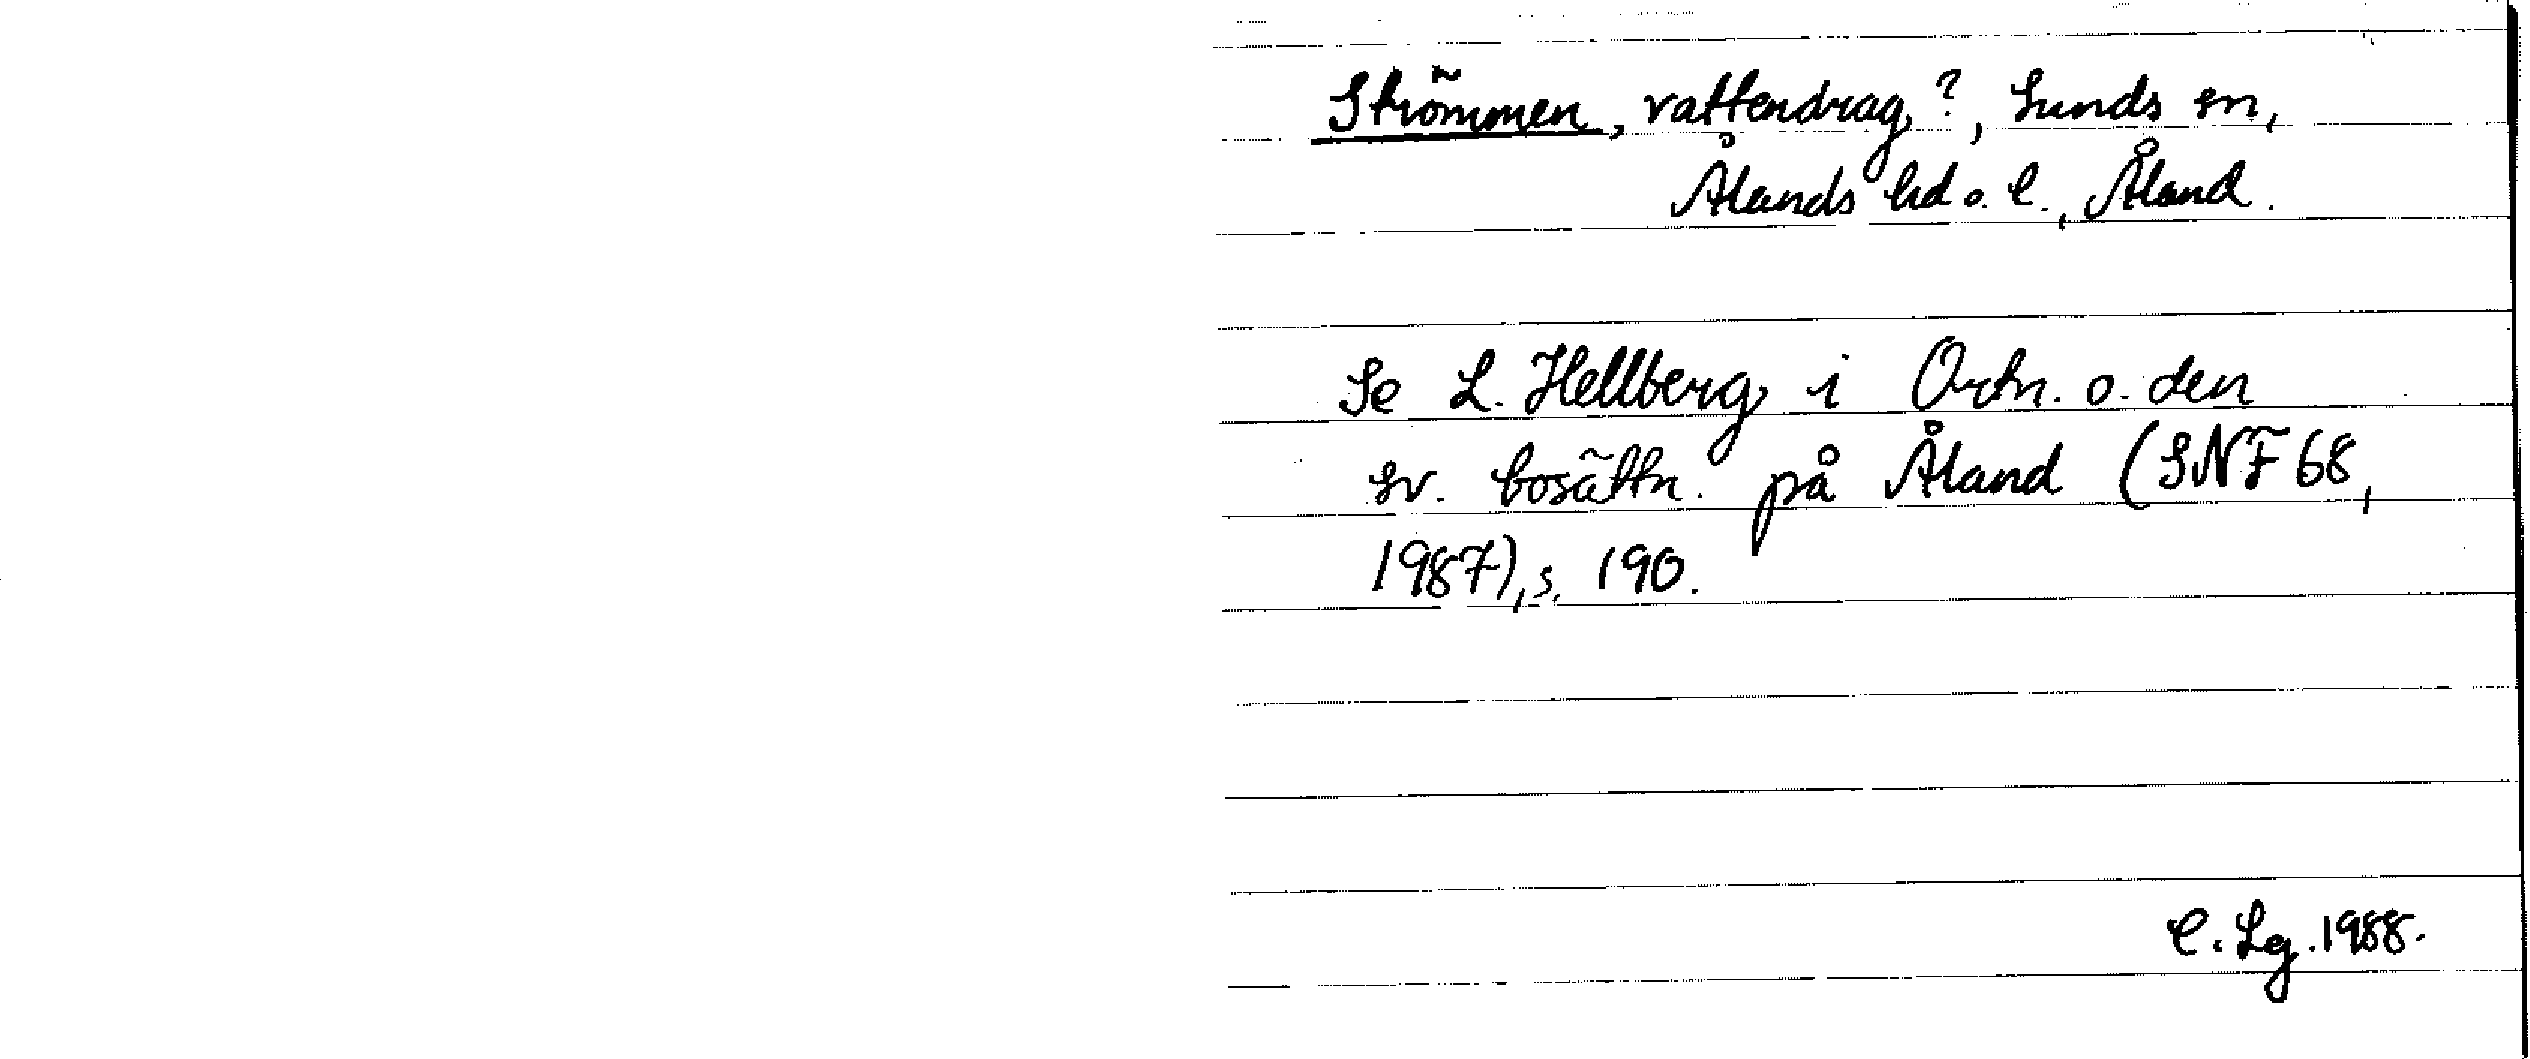 Strömmen, vattendrag?, Sunds sn,
Ålands hd o. l., Åland.
Se L. Hellberg i Ortn. o. den
sv. bosättn. på Åland (SNF 68,
1987), s. 190.
C. Lg. 1988.